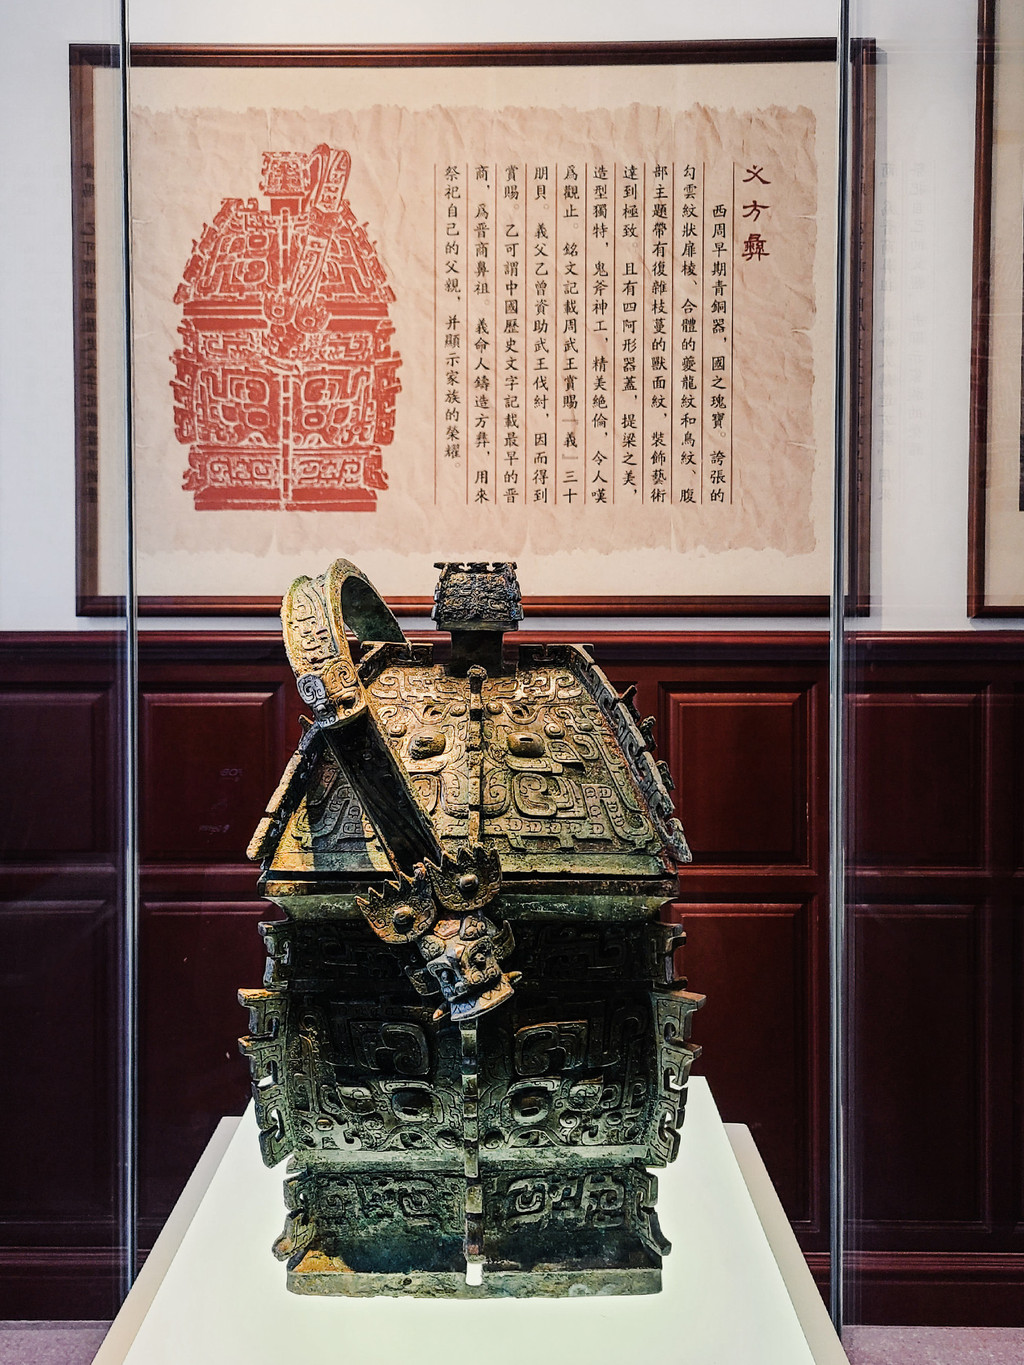 义方彝
西周早期青銅器，國之瑰寶。誇張的
勾雲紋狀扉棱、合體的夔龍紋和鳥紋、腹
部主題帶有復雜枝蔓的獸面紋，裝飾藝術
達到極致。且有四阿形器蓋，提梁之美，
造型獨特，鬼斧神工，精美絶倫，令人嘆
爲觀止。銘文記載周武王賞賜『義』三十
朋貝。義父乙曾資助武王伐紂，因而得到
賞賜。乙可謂中國歷史文字記載最早的晉
商，爲晋商鼻祖。義命人鑄造方彝，用來
祭祀自己的父親，并顯示家族的榮耀。